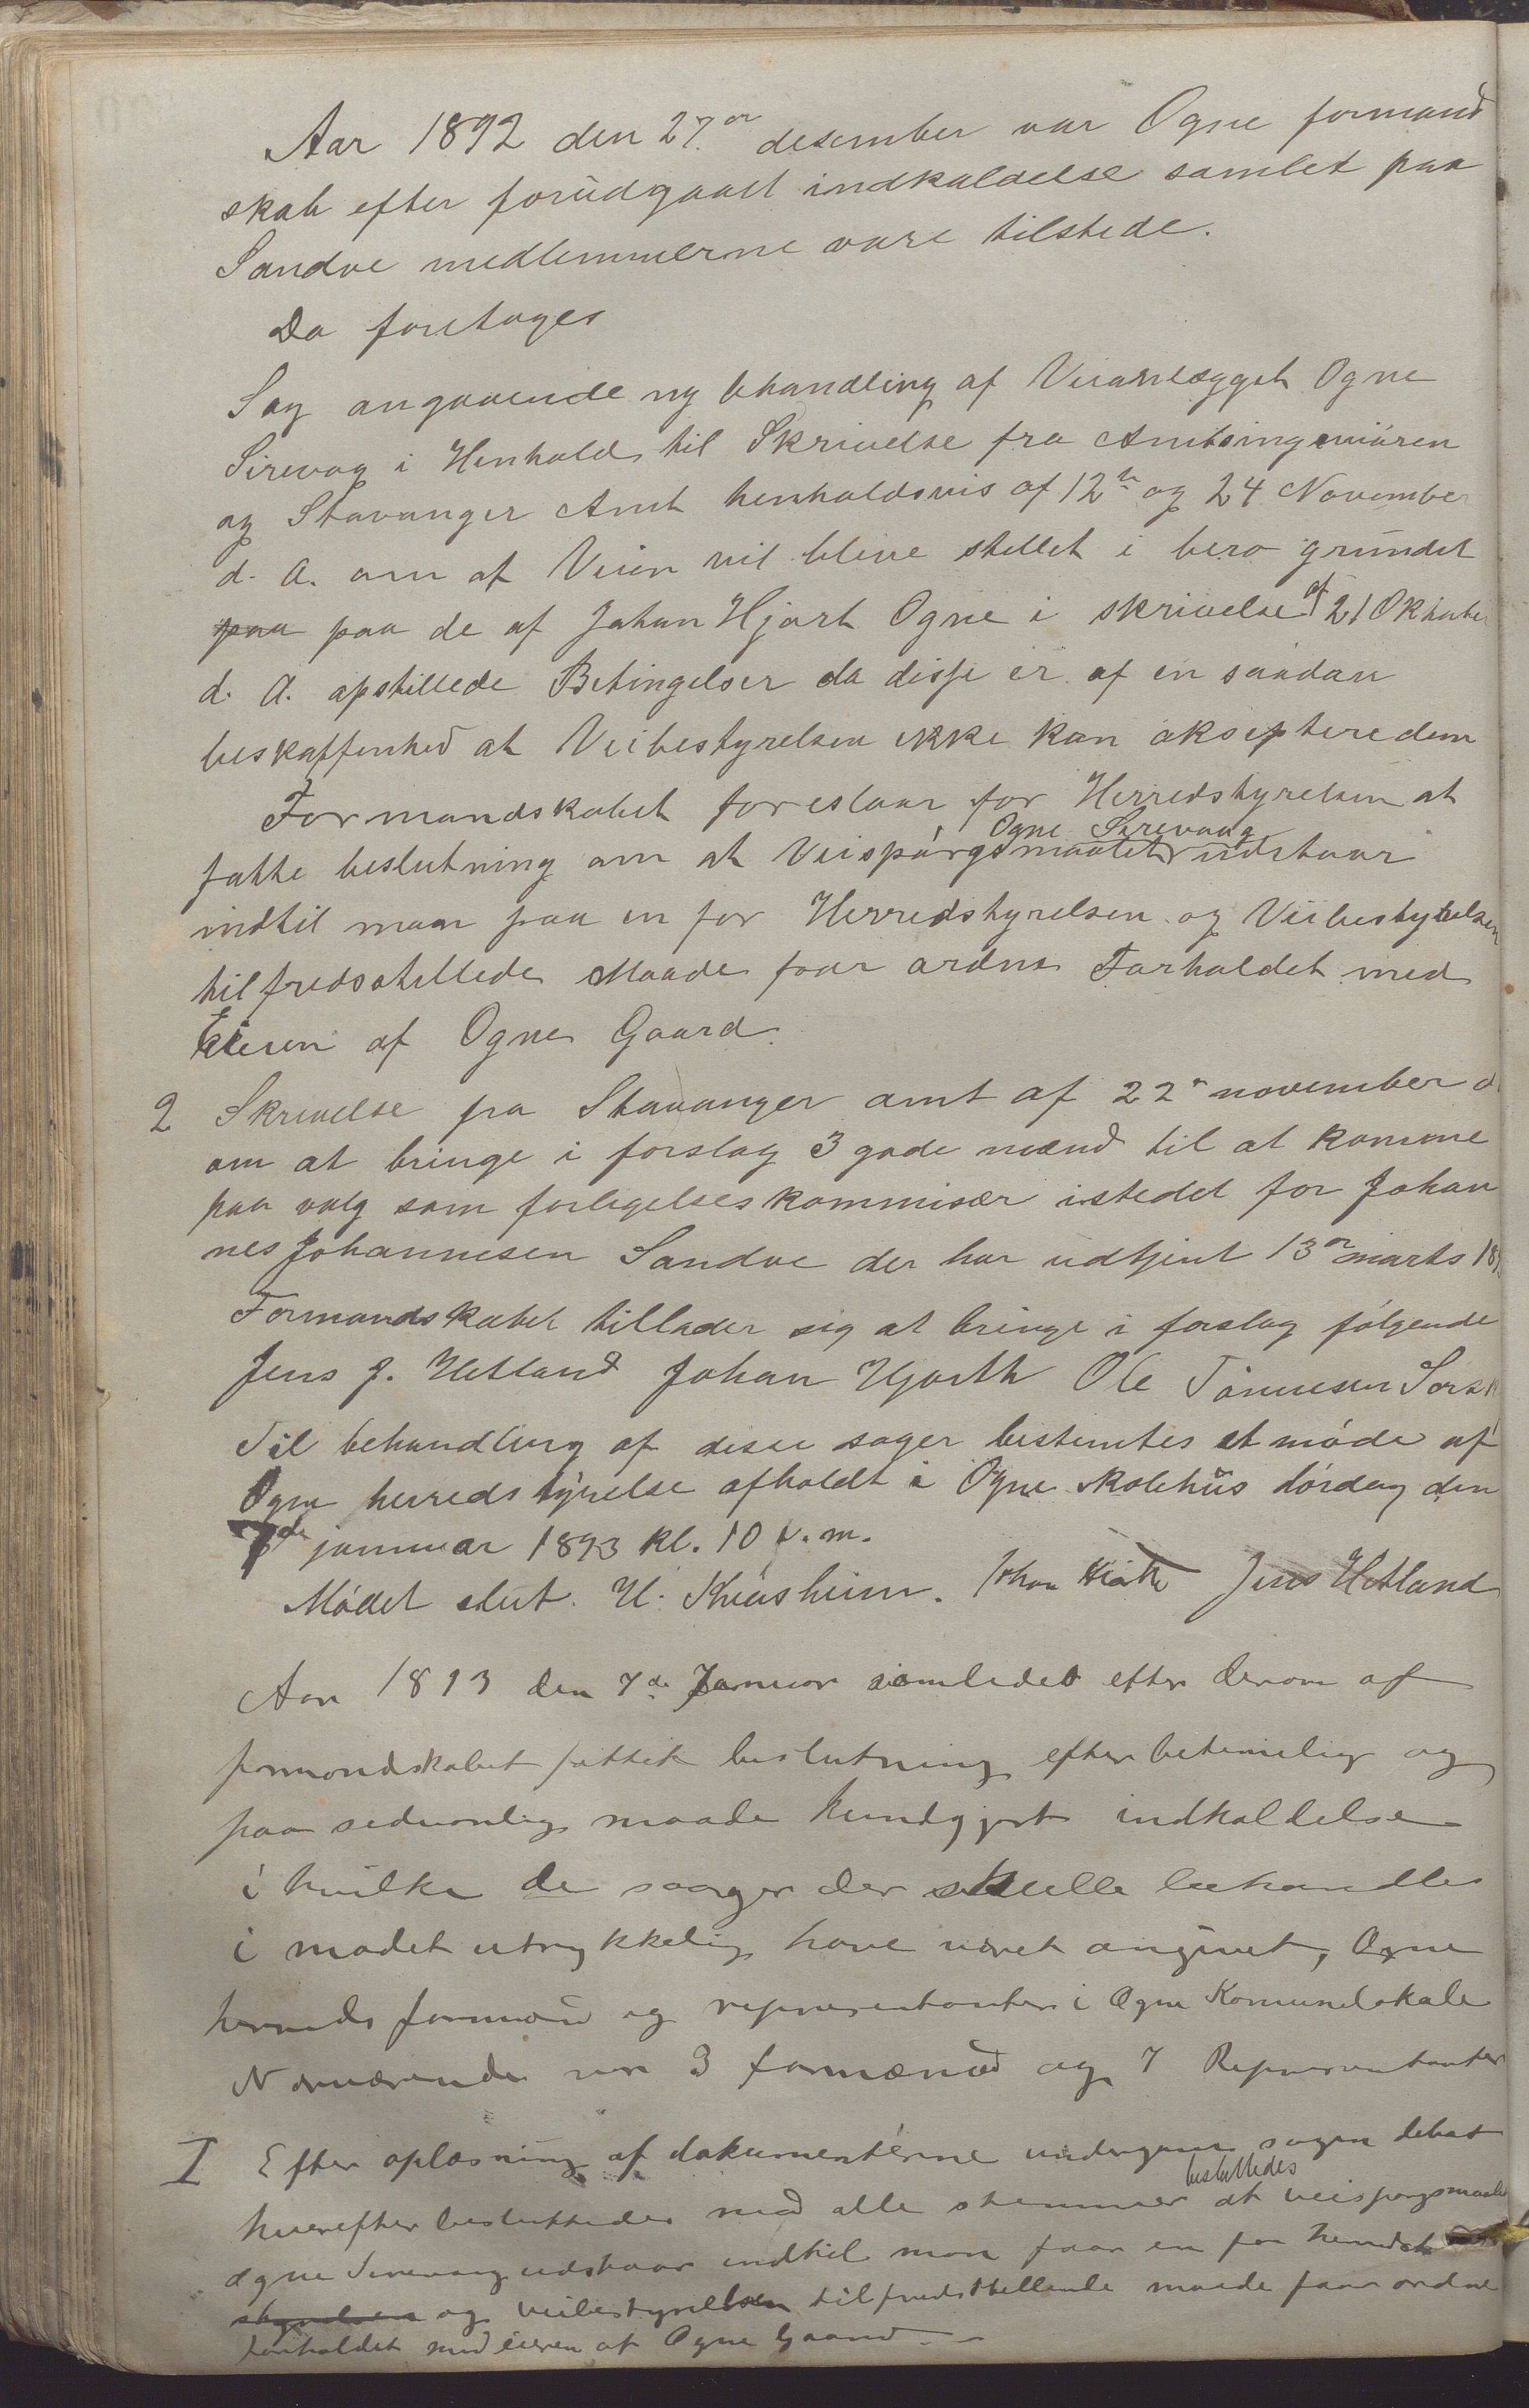 Aar 1892 den 27de desember var Ogne formand
skab efter forudgaaet indkaldelse samlet paa
Sandve medlemmerne vare tilstede.
Da foretoges
Sag angaaende ny behandling af Veianlægget Ogne
Sirevag i Henhold til Skrivelse fra Amtsingeniören
og Stavanger Amt henholdsvis af 12te og 24 November
d. A. om at Veien vil blive stillet i bero grundet
paa paa de af Johan Hjort Ogne i skrivelse af 21 Oktober
d. A. opstillede Betingelser da disse er af en saadan
beskaffenhed at Veibestyrelsen ikke kan akseptere dem
Formandskabet foreslaar for Herredstyrelsen at
fatte beslutning om at Veispörgsmaalet Ogne Sirevaag udstaar
indtil man paa en for Herredstyrelsen og Veibestyrelsen
tilfredsstillede Maade faar ordne Forholdet med
Eieren af Ogne Gaard.
2 Skrivelse fra Stavanger amt af 22de november d
om at bringe i forslag 3 gode mænd til at komme
paa valg som forligelseskommisær istedet for Johan
nes Johannesen Sandve der har udtjent 13de marts 18
Formandskabet tillader sig at bringe i forslag fölgende
Jens J. Hetland Johan Hjorth Ole Tönnesen
Til behandling af disse sager bestemtes et möde af
Ogne herredstyrelse afholdt i Ogne skolehus lördag den
7de januar 1893 kl. 10 f.m.
Mödet slut. U. Kviasheim. Johan Hiorth Jens Hetland
Aar 1893 den 7de Januar samledes efter derom af
formandskabet fattet beslutning efter betimelig og
paa sedvanlig maade kundgjort indkaldelse
i hvilke de saager der skulle behandles
i mødet utrykkelig have været angivet, Ogne
herreds formænd og representanter i Ogne Komunelokale
Nærværende var 3 formænd og 7 Representanter
I Efter oplæsning af dokumenterne undergaves sagen debat
hvorefter besluttedes med alle stemmer besluttedes at veispørgsmaalet
Ogne Sirevaag udstaar indtil man faar en for herredet
styrelsen og veibestyrelsen tilfredstillende maade faar ordne
forholdet med eieren af Ogne Gaard.